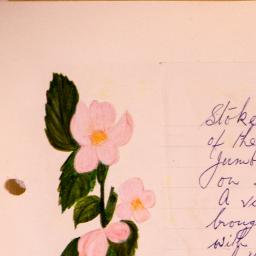 Stoke
of the
Jumb
on
A vi
broug
with